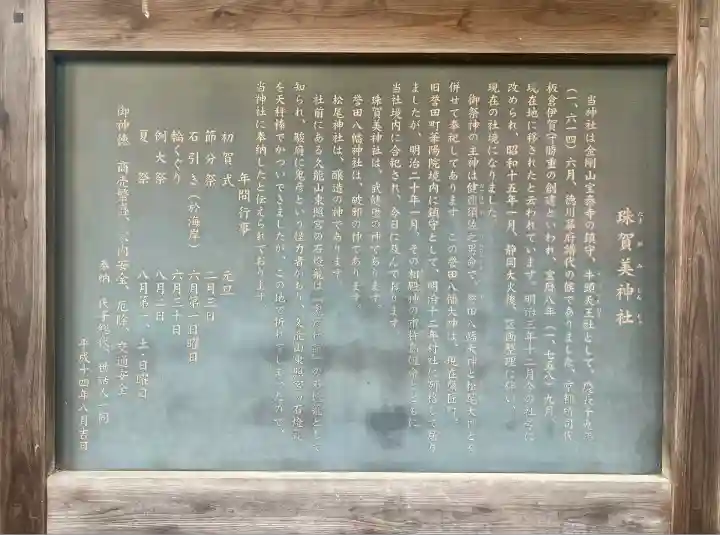 珠賀美神社
当神社は金剛山宝泰寺の鎮守、牛頭天王社として、慶長十九年
(一、六一四)六月、徳川幕府譜代の候でありました、京都所司代
板倉伊賀守勝重の創建といわれ、宝暦八年(一、七五八)九月、
現在地に移されたと云われています。明治三年十二月今の社名に
改められ、昭和十五年一月、静岡大火後、区画整理に伴い、
現在の社境になりました。
御祭神の主神は健速須佐之男命で、誉田八幡大神と松尾大神とを
併せて奉祀してあります この誉田八幡大神は、現在鷹匠町、
旧誉田町華陽院境内に鎮守として、明治十二年村社に列格して居り
ましたが、明治二十年一月、その相殿神の市杵島姫命とともに
当社境内に合祀され、今日に及んでおります
珠賀美神社は、武健霊の神であります。
誉田八幡神社は、破邪の神であります。
松尾神社は、醸造の神であります。
社前にある久能山東照宮の石燈籠は の石燈籠として
知られ、駿府に鬼彦という怪力者がおり、久能山東照宮の石燈籠
を天秤棒でかついできましたが、この地で折れてしまったので、
当神社に奉納したと伝えられております
年間行事
初賀式 元旦
節分祭 二月三日
石引き(於海岸) 六月第一日曜日
輪くぐり 六月三十日
例大祭 八月二日
夏祭 八月第一、土・日曜日
御神徳 商売繁昌、家内安全、厄除、交通安全
奉納 氏子総代、世話人一同
平成十四年八月吉日